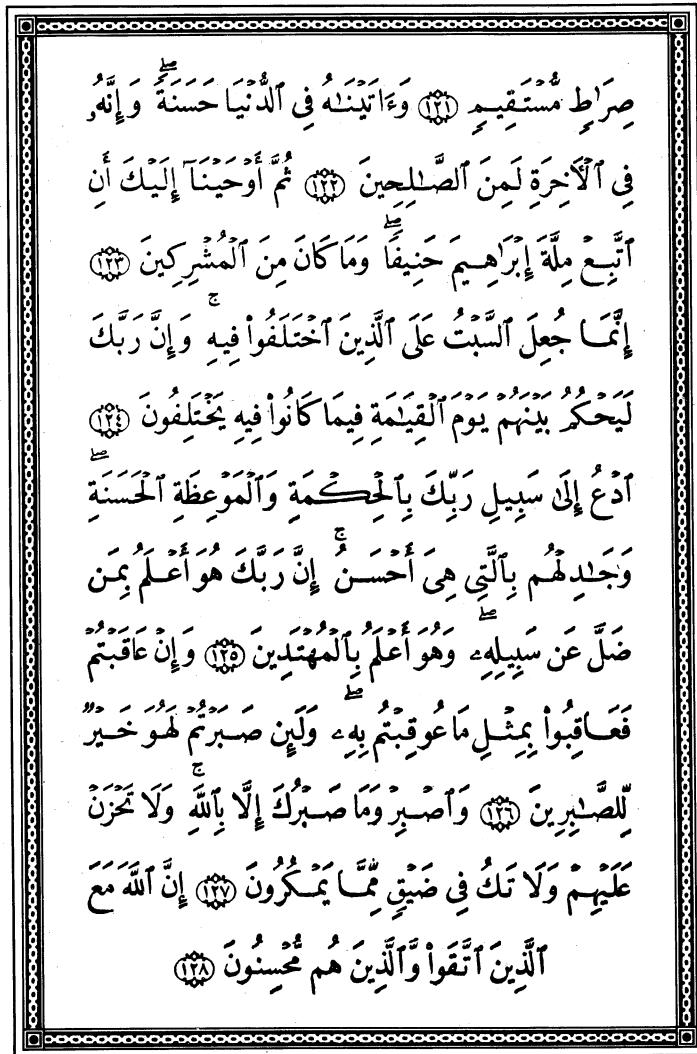 صِرَٰطٍ مُّسْتَقِيمٍ ١٢١ وَءَاتَيْنَٰهُ فِى ٱلدُّنْيَا حَسَنَةً ۖ وَإِنَّهُۥ
فِى ٱلْءَاخِرَةِ لَمِنَ ٱلصَّٰلِحِينَ ١٢٢ ثُمَّ أَوْحَيْنَآ إِلَيْكَ أَنِ
ٱتَّبِعْ مِلَّةَ إِبْرَٰهِيمَ حَنِيفًا ۖ وَمَا كَانَ مِنَ ٱلْمُشْرِكِينَ ١٢٣
إِنَّمَا جُعِلَ ٱلسَّبْتُ عَلَى ٱلَّذِينَ ٱخْتَلَفُوا۟ فِيهِ ۚ وَإِنَّ رَبَّكَ
لَيَحْكُمُ بَيْنَهُمْ يَوْمَ ٱلْقِيَٰمَةِ فِيمَا كَانُوا۟ فِيهِ يَخْتَلِفُونَ ١٢٤
ٱدْعُ إِلَىٰ سَبِيلِ رَبِّكَ بِٱلْحِكْمَةِ وَٱلْمَوْعِظَةِ ٱلْحَسَنَةِ ۖ
وَجَٰدِلْهُم بِٱلَّتِى هِىَ أَحْسَنُ ۚ إِنَّ رَبَّكَ هُوَ أَعْلَمُ بِمَن
ضَلَّ عَن سَبِيلِهِۦ ۖ وَهُوَ أَعْلَمُ بِٱلْمُهْتَدِينَ ١٢٥ وَإِنْ عَاقَبْتُمْ
فَعَاقِبُوا۟ بِمِثْلِ مَا عُوقِبْتُم بِهِۦ ۖ وَلَئِن صَبَرْتُمْ لَهُوَ خَيْرٌ
لِّلصَّٰبِرِينَ ١٢٦ وَٱصْبِرْ وَمَا صَبْرُكَ إِلَّا بِٱللَّهِ ۚ وَلَا تَحْزَنْ
عَلَيْهِمْ وَلَا تَكُ فِى ضَيْقٍ مِّمَّا يَمْكُرُونَ ١٢٧ إِنَّ ٱللَّهَ مَعَ
ٱلَّذِينَ ٱتَّقَوا۟ وَّٱلَّذِينَ هُم مُّحْسِنُونَ ١٢٨